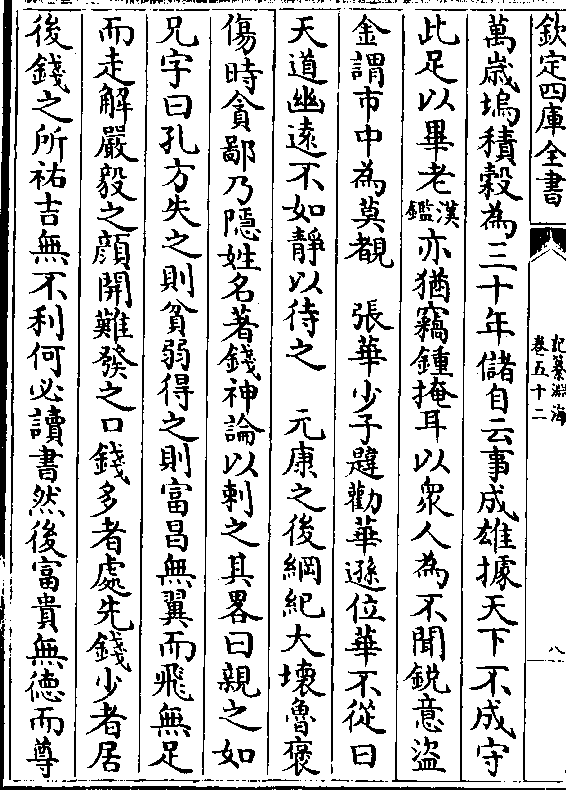 欽定四庫全書
記纂淵海
卷五十二
八
萬歳塢積穀為三十年儲自云事成雄據天下不成守
此足以畢老漢鑑亦猶竊鍾掩耳以衆人為不聞鋭意盜
金謂市中為莫覩　張華少子韙勸華遜位華不從曰
天道幽遠不如靜以待之　元康之後綱紀大壊魯褒
傷時貪鄙乃隱姓名著錢神論以刺之其畧曰親之如
兄字曰孔方失之則貧弱得之則富昌無翼而飛無足
而走解嚴毅之顔開難發之口錢多者處先錢少者居
後錢之所祐吉無不利何必讀書然後富貴無徳而尊